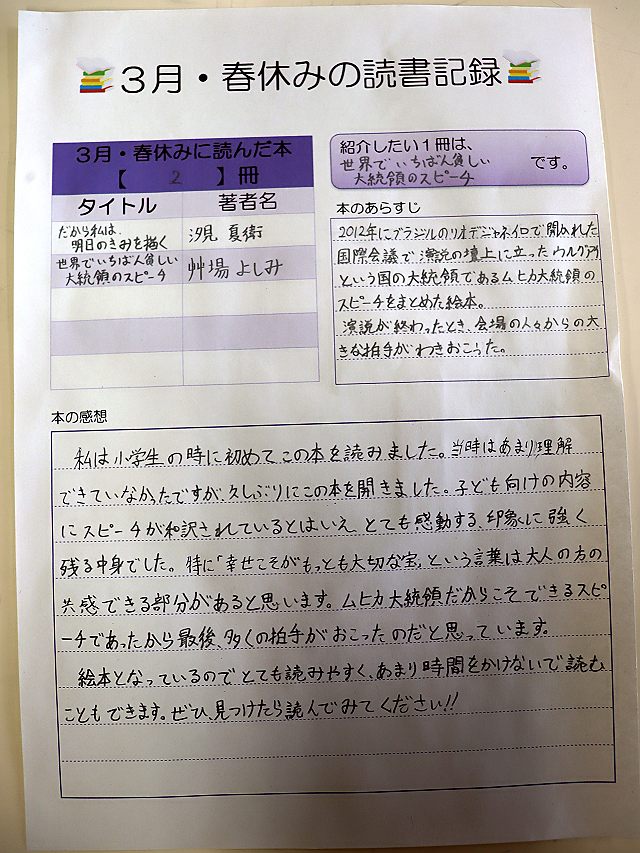 3月・春休みの読書記録
3月・春休みに読んだ本
【 2 】冊
タイトル
著者名
だから私は、
明日のきみを描く
汐見 夏衛
世界でいちばん貧しい
大統領のスピーチ
艸場 よしみ
紹介したい1冊は、
世界でいちばん貧しい
大統領のスピーチ
です。
本のあらすじ
2012年にブラジルのリオデジャネイロで開かれた
国際会議で演説の壇上に立ったウルグアイ
という国の大統領であるムヒカ大統領の
スピーチをまとめた絵本。
演説が終わったとき、会場の人々からの大
きな拍手がわきおこった。
本の感想
私は小学生の時に初めてこの本を読みました。当時はあまり理解
できていなかったですが、久しぶりにこの本を開きました。子ども向けの内容
にスピーチが和訳されているとはいえ、とても感動する、印象に強く
残る中身でした。特に「幸せこそがもっとも大切な宝」という言葉は大人の方の
共感できる部分があると思います。ムヒカ大統領だからこそできるスピ
ーチであったから最後、多くの拍手がおこったのだと思っています。
絵本となっているのでとても読みやすく、あまり時間をかけないで読む
こともできます。ぜひ、見つけたら読んでみてください!!